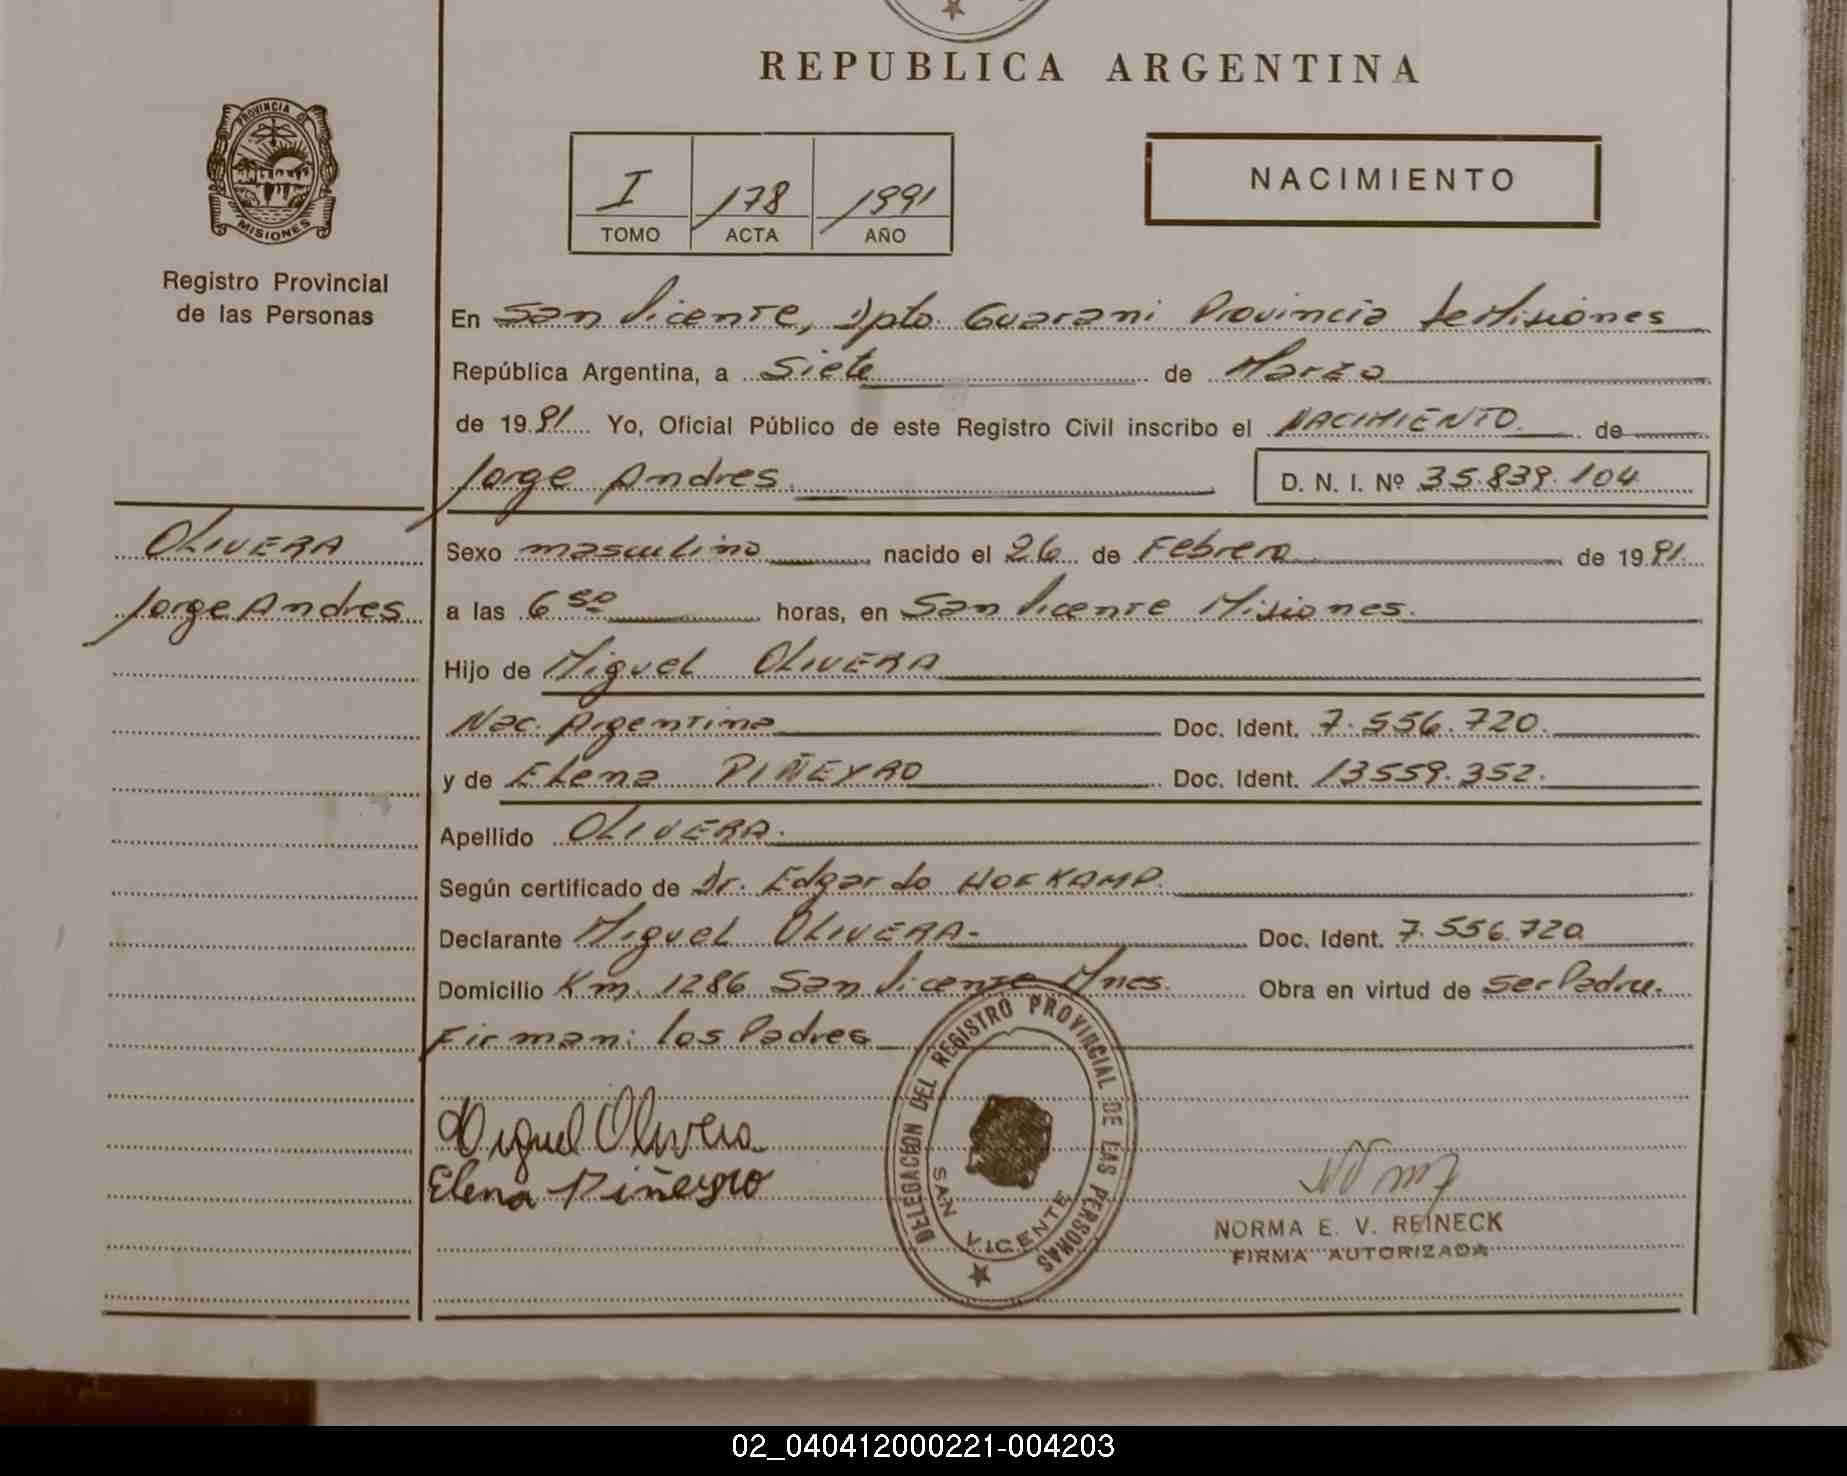 REPUBLICA ARGENTINA
PROVINCIA DE
MISIONES
Registro Provincial
de las Personas
I 178 1991
TOMO ACTA AÑO
NACIMIENTO
En San Vicente, Dpto. Guarani Provincia de Misiones
República Argentina, a Siete de Marzo
de 1991 Yo, Oficial Público de este Registro Civil inscribo el NACIMIENTO. de
Jorge Andres. D. N. I. Nº 35.839.104
OLIVERA
Jorge Andres
Sexo masculino nacido el 26 de Febrero de 1991.
a las 6 50 horas, en San Vicente Misiones.
Hijo de Miguel OLIVERA
Nac. Argentina Doc. Ident. 7.556.720.
y de Elena PIÑEYRO Doc. Ident. 13559.352.
Apellido OLIVERA.
Según certificado de Dr. Edgardo HOEKAMP.
Declarante Miguel OLIVERA- Doc. Ident. 7.556.720
Domicilio Km. 1286 San Vicente Mnes. Obra en virtud de ser Padre.
Firman: los Padres
Miguel Olivera
Elena Piñeyro
DELEGACION DEL REGISTRO PROVINCIAL DE LAS PERSONAS
SAN VICENTE
NORMA E. V. REINECK
FIRMA AUTORIZADA
02_040412000221-004203